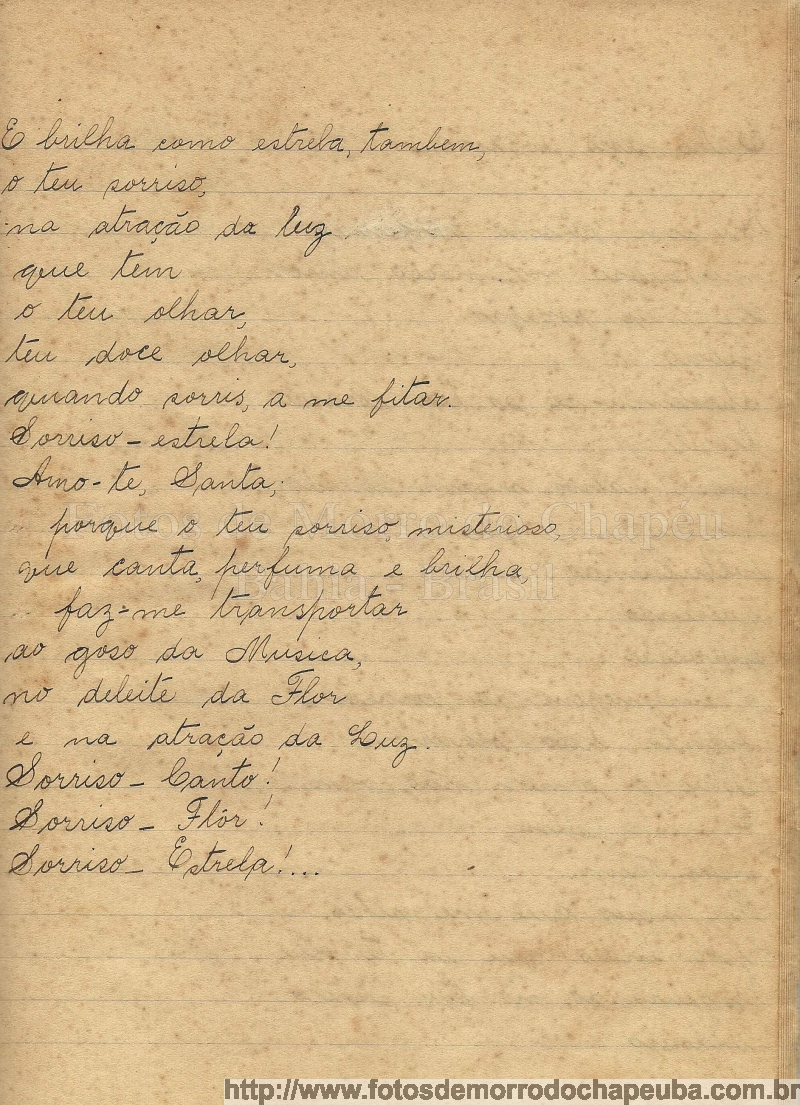 E brilha como estrela, tambem,
o teu sorriso,
na atração da luz
que tem
o teu olhar,
teu doce olhar,
quando sorris, a me fitar.
Sorriso - estrela!
Amo-te, Santa,
porque o teu sorriso, misterioso,
que canta, perfuma e brilha,
faz-me transportar
ao goso da Musica,
no deleite da Flor
e na atração da Luz.
Sorriso - Canto!
Sorriso - Flôr!
Sorriso - Estrela!...
Fotos de Morro do Chapéu
Bahia - Brasil
http://www.fotosdemorrodochapeuba.com.br